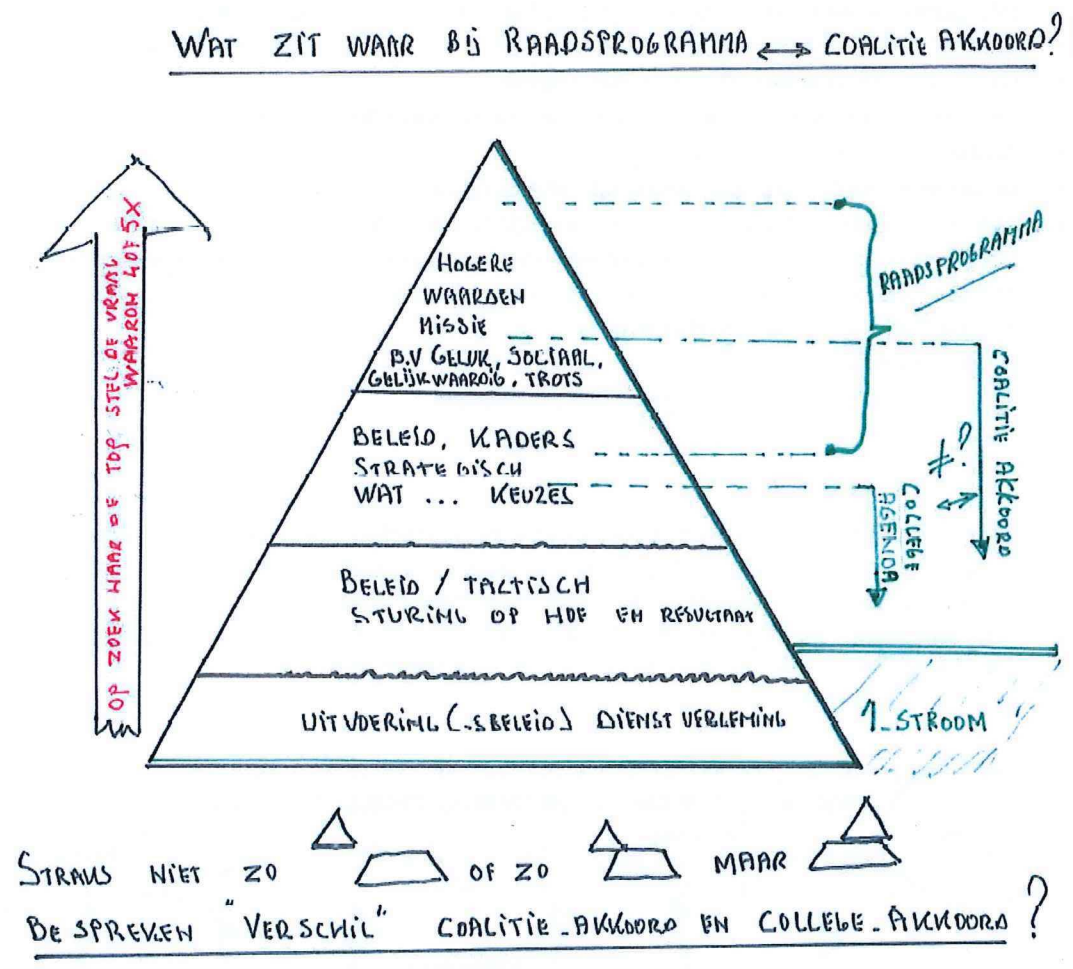 WAT ZIT WAAR BIJ RAADSPROGRAMMA ↔ COALITIE AKKOORD?
OP ZOEK NAAR DE TOP STEL DE VRAAG
WAAROM 4 OF 5X
HOGERE
WAARDEN
MISSIE
B.V GELUK, SOCIAAL,
GELIJKWAARDIG, TROTS
BELEID, KADERS
STRATEGISCH
WAT ... KEUZES
BELEID / TACTISCH
STURING OP HOE EN RESULTAAT
UITVOERING (-SBELEID) DIENSTVERLENING
RAADSPROGRAMMA
COALITIE AKKOORD
≠?
COLLEGE
AGENDA
1-STROOM
STRAKS NIET ZO OF ZO MAAR
BESPREKEN "VERSCHIL" COALITIE-AKKOORD EN COLLEGE-AKKOORD?